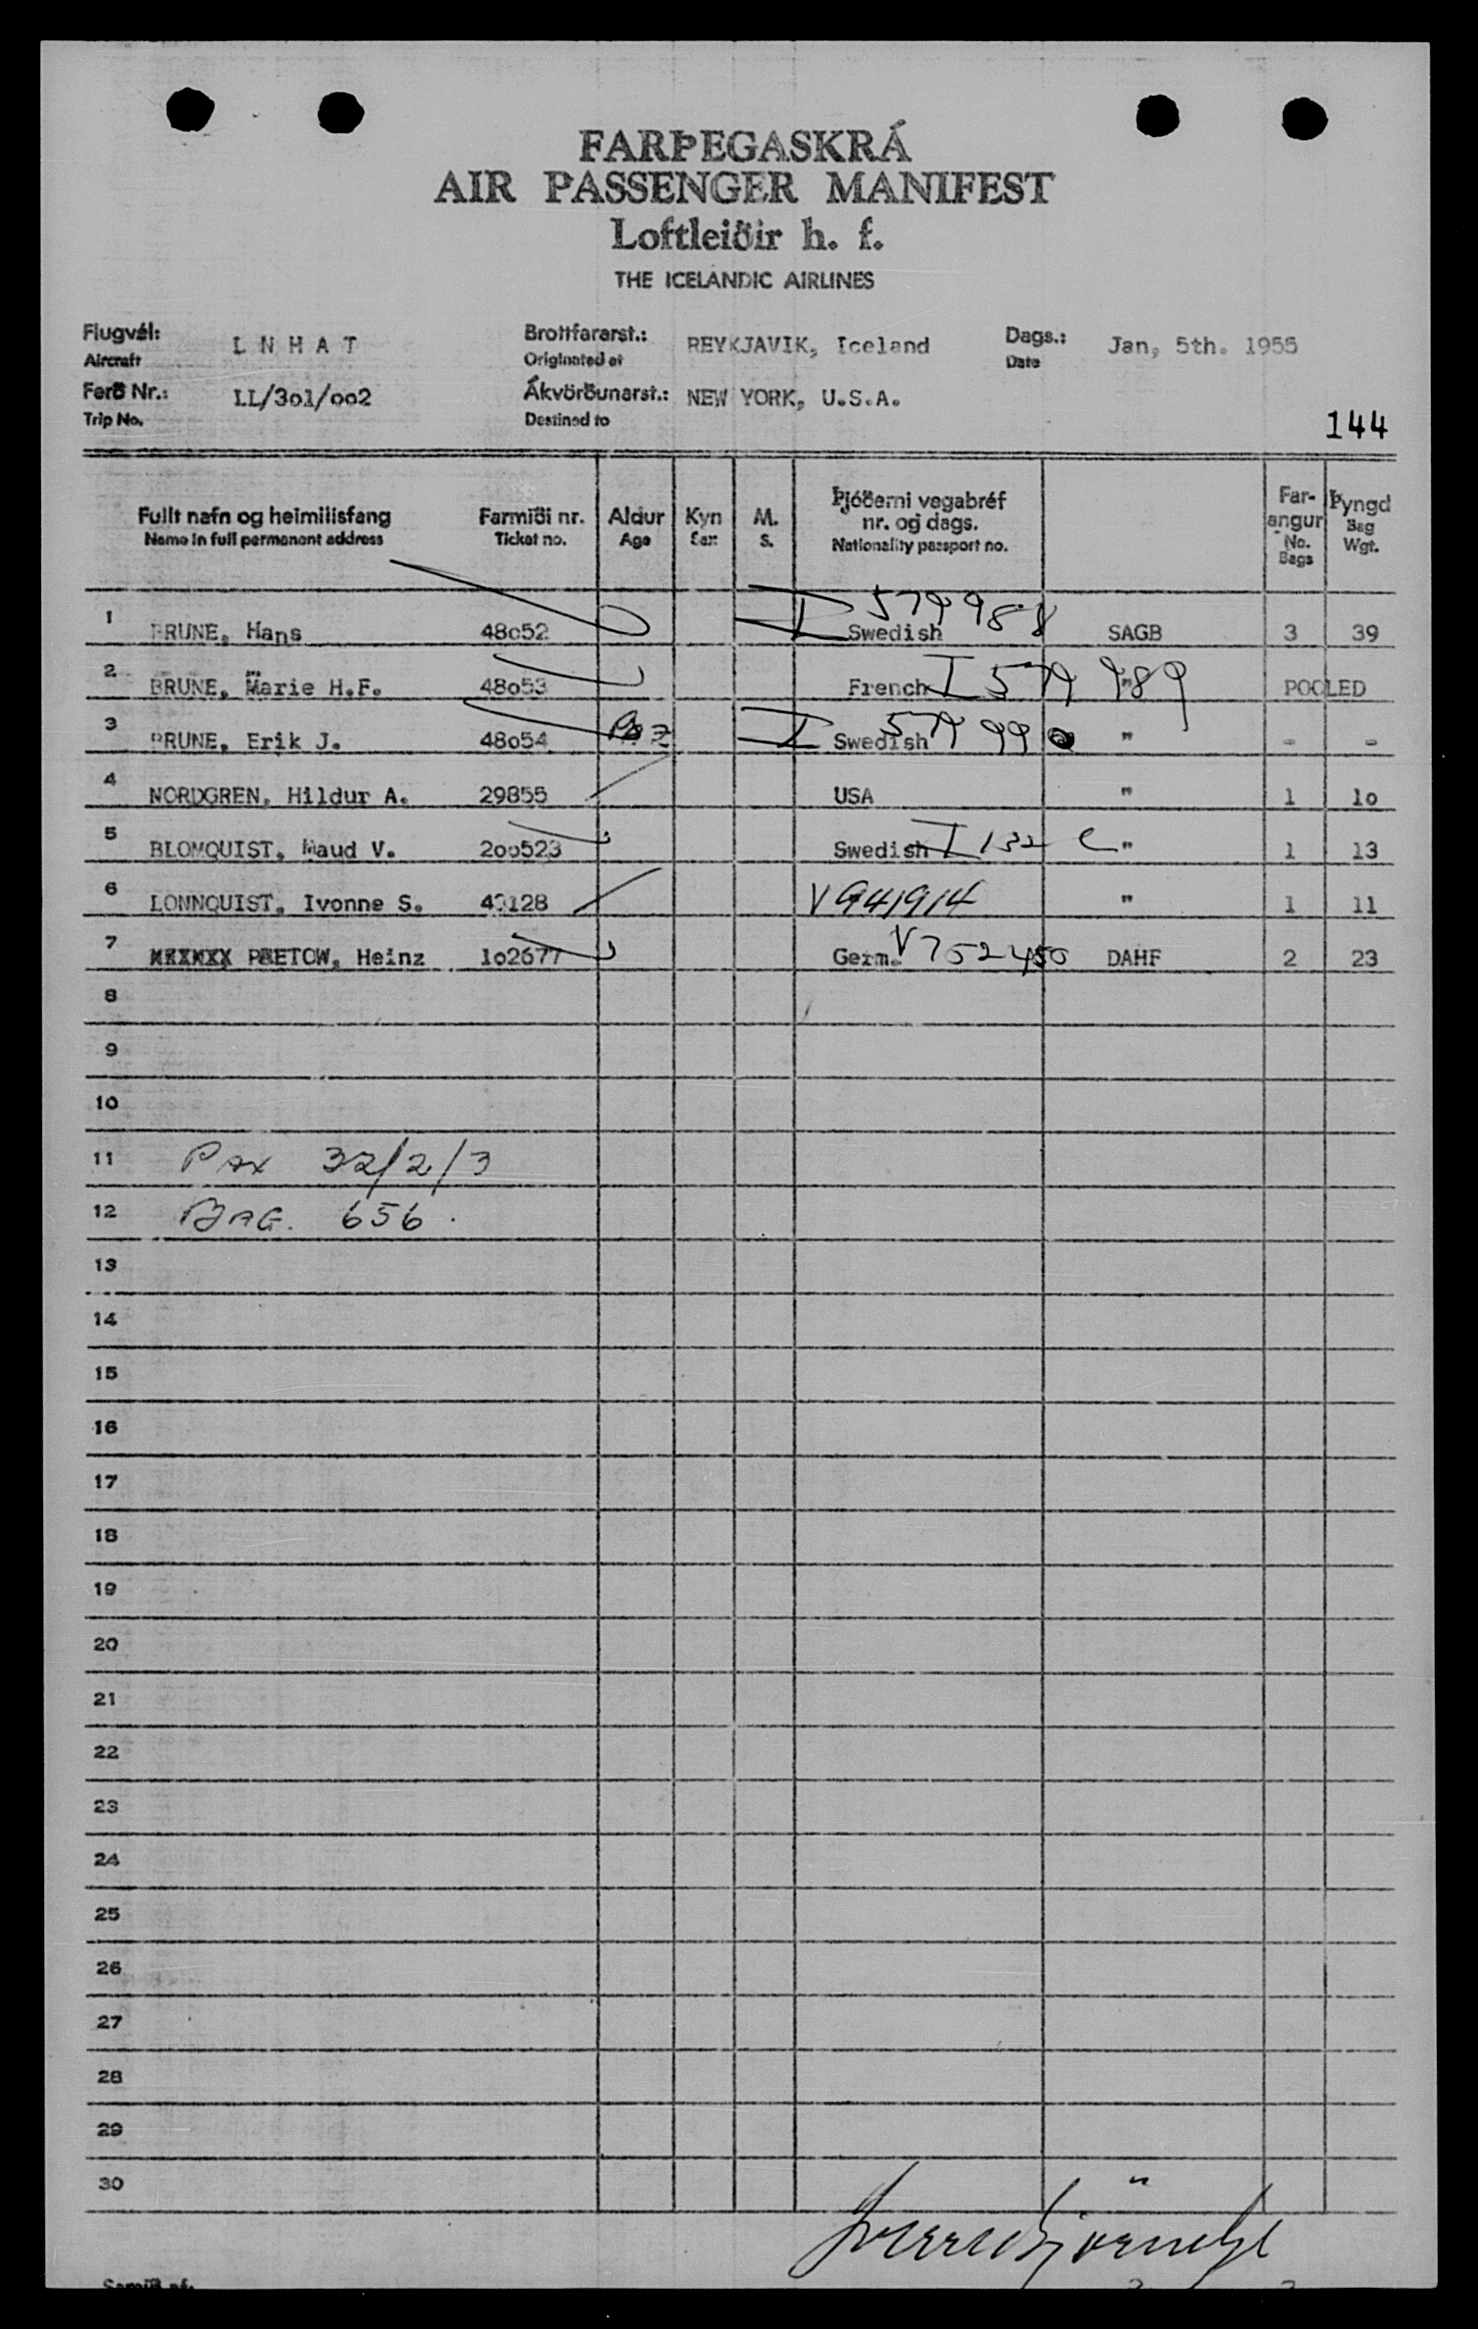 FARÞEGASKRÁ
AIR PASSENGER MANIFEST
Loftleiðir h. f.
THE ICELANDIC AIRLINES
Flugvél: L N H A T Brottfararst.: REYKJAVIK, Iceland Dags.: Jan, 5th. 1955
Aircraft Originated at Date
Ferð Nr.: LL/3o1/oo2 Ákvörðunarst.: NEW YORK, U.S.A.
Trip No. Destined to
144
Fullt nafn og heimilisfang Farmiði nr. Aldur Kyn M. Þjóðerni vegabréf nr. og dags. Farangur Þyngd
Name in full permanent address Ticket no. Age Sex S. Nationality passport no. No. Bags Bag Wgt.
1 BRUNE, Hans 48o52 I 579988 Swedish SAGB 3 39
2 BRUNE, Marie H.F. 48o53 French I 579989 " POOLED
3 BRUNE, Erik J. 48o54 I 579990 Swedish " - -
4 NORDGREN, Hildur A. 29855 USA " 1 1o
5 BLOMQUIST, Maud V. 2oo523 Swedish I 132 " 1 13
6 LONNQUIST, Ivonne S. 43128 V941914 " 1 11
7 PRETOW, Heinz 1o2677 Germ. V752450 DAHF 2 23
8
9
10
11 Pax 32/2/3
12 BAG. 656.
13
14
15
16
17
18
19
20
21
22
23
24
25
26
27
28
29
30